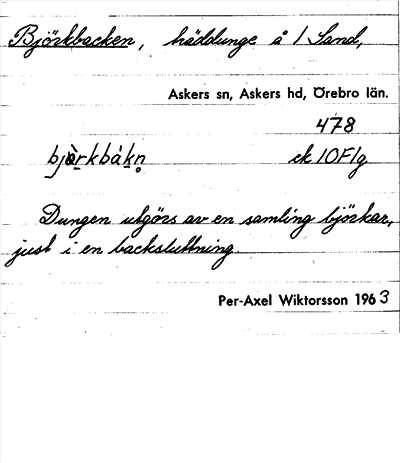 Björkbacken, träddunge å 1 Sand,
Askers sn, Askers hd, Örebro län.
478
bjò̱rkbàḵn̥ ek 10F1g
Dungen utgörs av en samling björkar,
just i en backsluttning.
Per-Axel Wiktorsson 1963